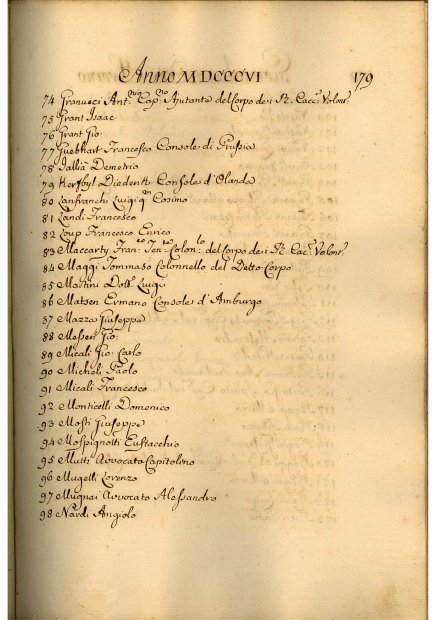 Anno MDCCCVI 179
74 Granucci Ant.° Cap.no Ajutante del Corpo dei R. Cacc.i Volont.i
75 Grant Isaac
76 Grant Gio:
77 Guebhart Francesco Console di Prussia
78 Jallia Demetrio
79 Diederik Console d'Olanda
80 Lanfranchi Luigi q.m Cosimo
81 Landi Francesco
82 Loup Francesco Enrico
83 Maccarty Fran.co Ten.te Colon.lo del Corpo dei R. Cac.i Volont.i
84 Maggi Tommaso Colonnello del Detto Corpo
85 Martini Dott.r Luigi
86 Matsen Ermano Console d'Amburgo
87 Mazza Giuseppe
88 Gio:
89 Micali Gio: Carlo
90 Micheli Paolo
91 Micali Francesco
92 Monticelli Domenico
93 Mosti Giuseppe
94 Mospignotti Eustacchio
95 Multi Avvocato Capitolino
96 Mugelli Lorenzo
97 Mugnai Avvocato Alessandro
98 Nardi Angiolo